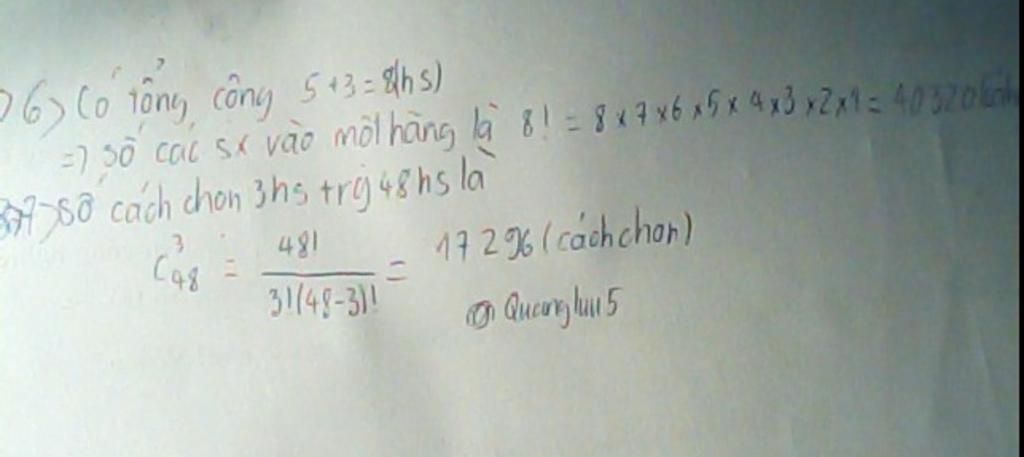 6) Có tổng cộng 5+3=8(hs)
=) số các sx vào một hàng là 8! = 8×7×6×5×4×3×2×1 = 40320
7) số cách chon 3hs trg 48hs là
C³₄₈ = 48! / 3!(48-3)! = 17296 (cách chon)
Quangluu5